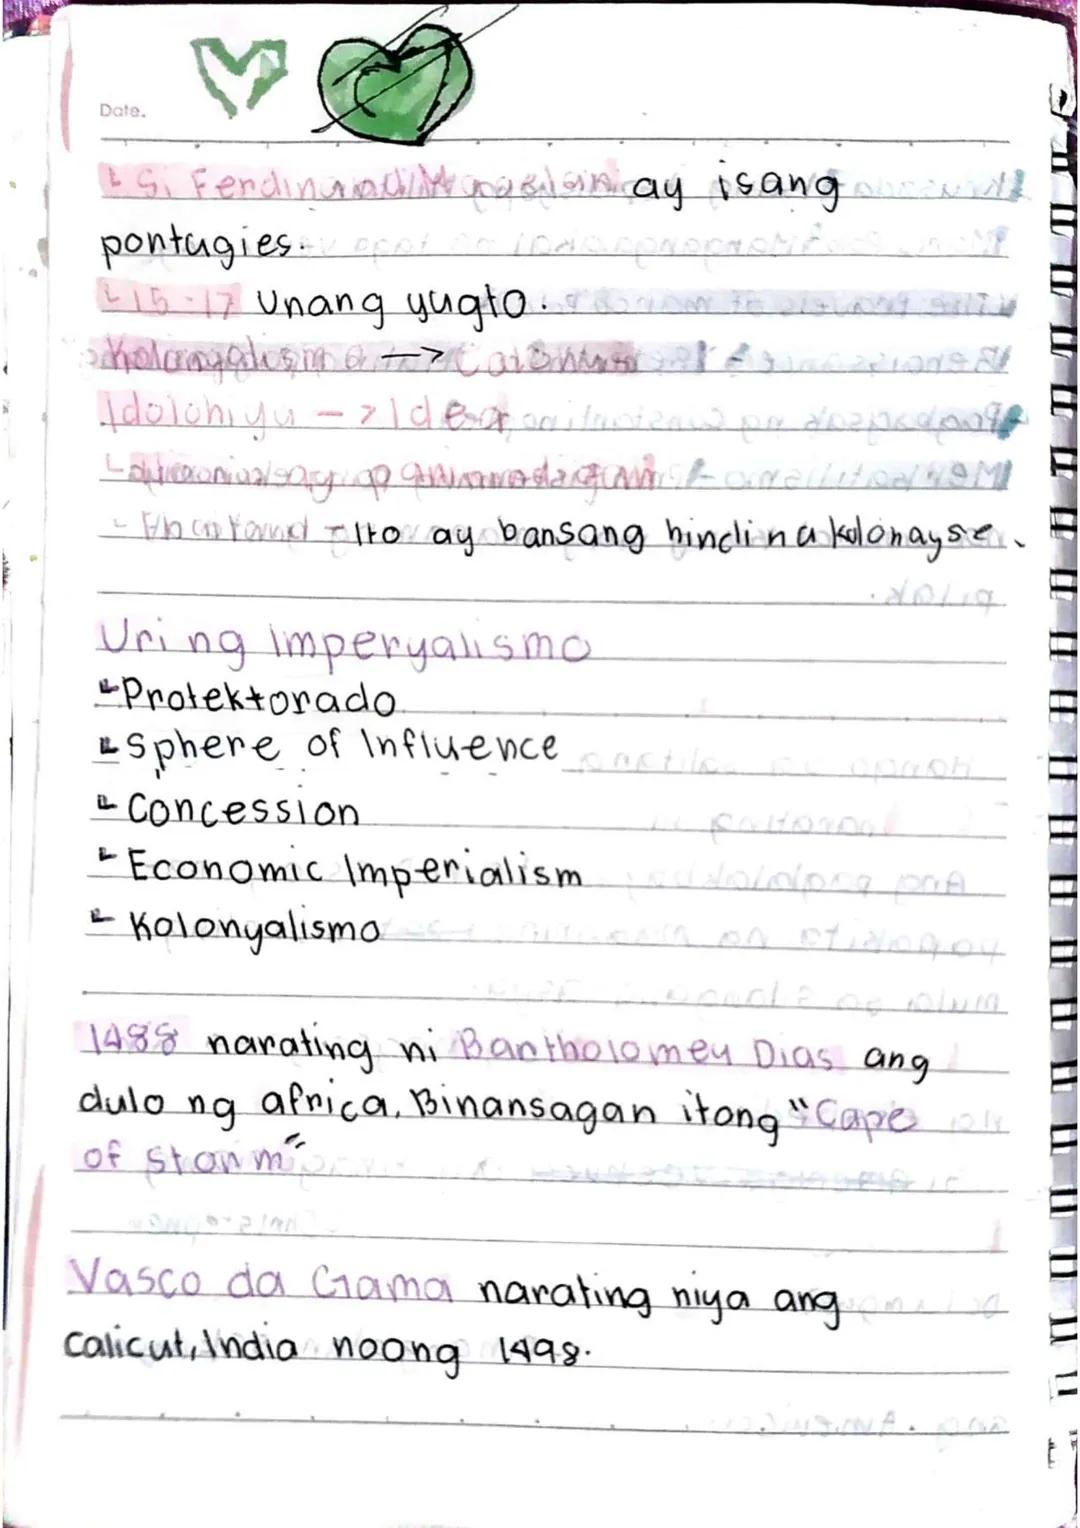 Date.
Si Ferdinand Magaslan ay isang
pontugies.
15-17 Unang yugto.
Kolonyalismo -> Colonus
Idolohiyu -> Idea
- Ito ay bansang hindi na kolonayse.
Uri ng Imperyalismo
Protektorado
Sphere of Influence
Concession
Economic Imperialism
Kolonyalismo
1488 narating ni Bartholomeu Dias ang
dulo ng africa, Binansagan itong "Cape
of storm"
Vasco da Gama narating niya ang
calicut, India noong 1498.